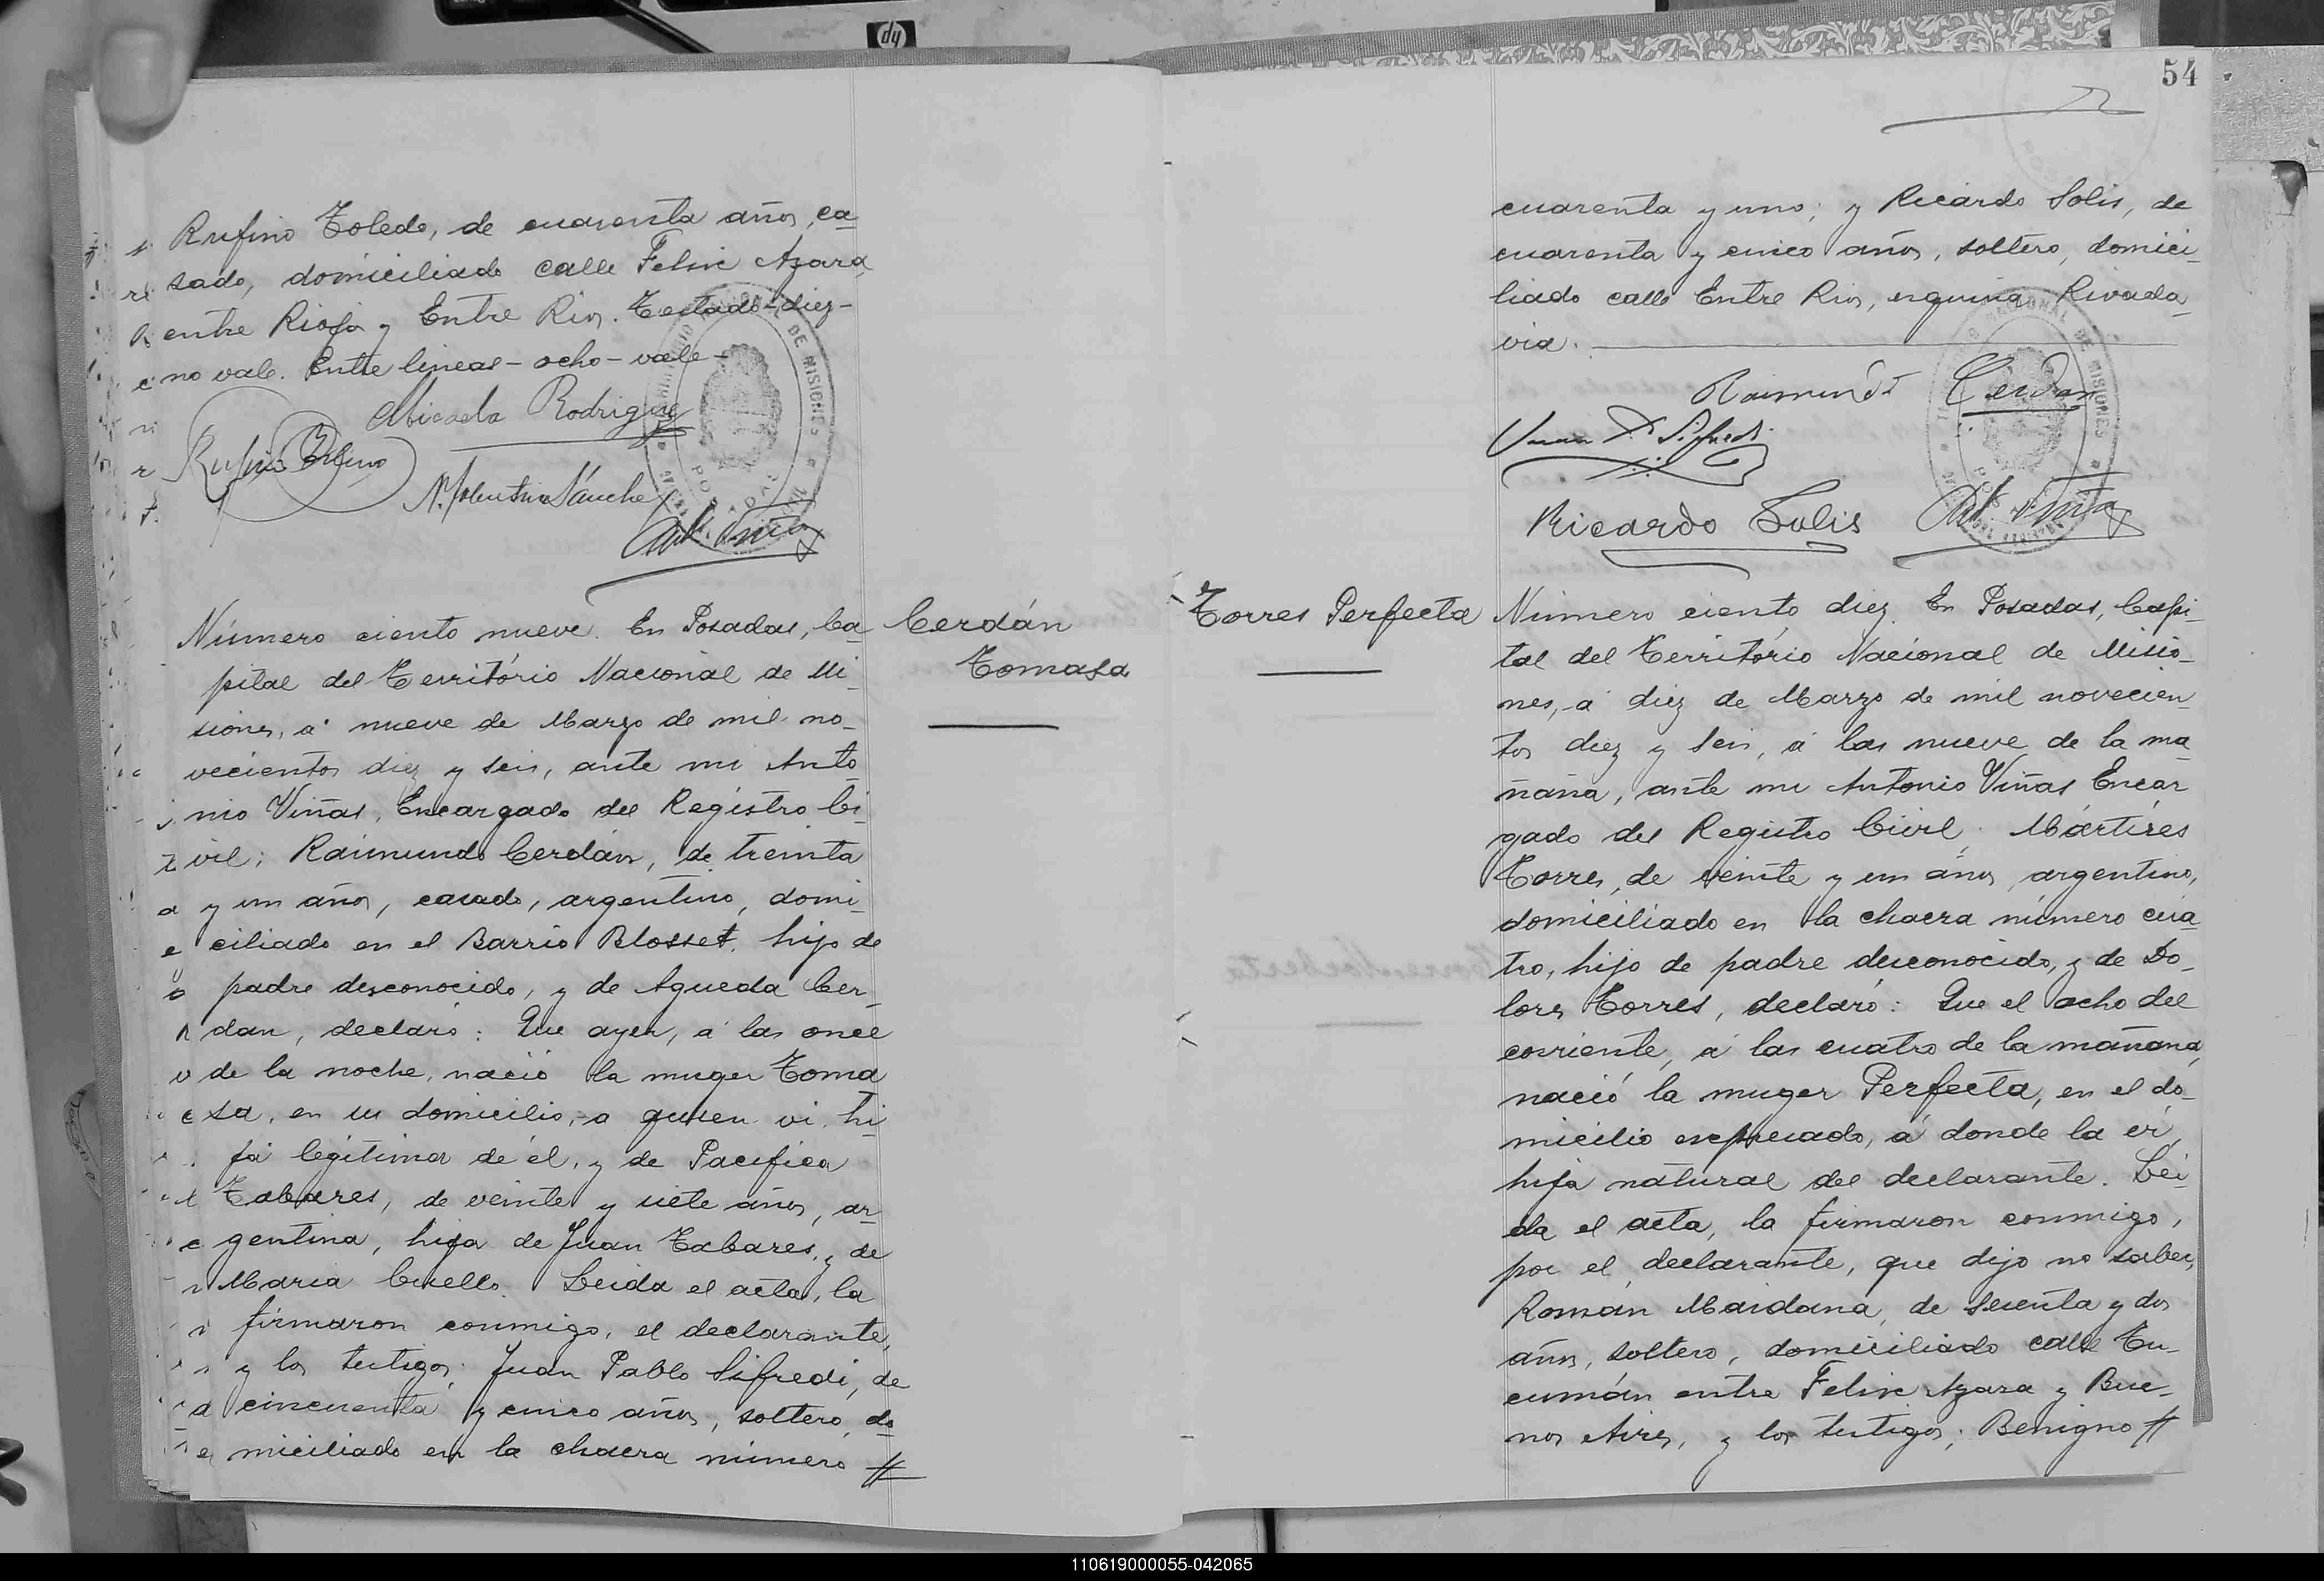 Rufino Toledo, de cuarenta años, ca
sado, domiciliado calle Felix Azara
entre Rioja y Entre Rios. Testado-diez-
no vale. Entre lineas-ocho-vale-
Micaela Rodriguez
Cerdán
Tomasa
Número ciento nueve. En Posadas, Ca
pital del Território Nacional de Mi
siones, á nueve de Marzo de mil no
vecientos diez y seis, ante mi Anto
nio Viñas, Encargado del Registro Ci
vil; Raimundo Cerdán, de treinta
y un años, casado, argentino, domi
ciliado en el Barrio Blosset, hijo de
padre desconocido, y de Agueda Cer
dan, declaró: Que ayer, á las once
de la noche, nació la muger Toma
sa, en su domicilio, a quien vi, hi
ja legítima de él, y de Pacifica
Tabares, de veinte y siete años, ar
gentina, hija de Juan Tabares, y de
Maria Cuello. Leida el acta, la
firmaron conmigo, el declarante,
y los testigos; Juan Pablo Sifredi, de
cincuenta y cinco años, soltero, do
miciliado en la chacra número //
54
cuarenta y uno; y Ricardo Solis, de
cuarenta y cinco años, soltero, domici
liado calle Entre Rios, esquina Rivada
via.
Raimundo Cerdan
Ricardo Solis
TERRITORIO NACIONAL DE MISIONES
Torres Perfecta
Número ciento diez. En Posadas, Capi
tal del Território Nacional de Misio
nes, á diez de Marzo de mil novecien
tos diez y seis, á las nueve de la ma
ñana, ante mi Antonio Viñas Encar
gado del Registro Civil; Mártires
Torres, de veinte y un años, argentino,
domiciliado en la chacra número cua
tro, hijo de padre desconocido, y de Do
lores Torres, declaró: Que el ocho del
corriente, á las cuatro de la mañana,
nació la muger Perfecta, en el do
micilio expresado, á donde la ví,
hija natural del declarante. Lei
da el acta, la firmaron conmigo,
por el declarante, que dijo no saber,
Román Maidana, de sesenta y dos
años, soltero, domiciliado calle Tu
cumán entre Felix Azara y Bue
nos Aires, y los testigos; Benigno //
110619000055-042065